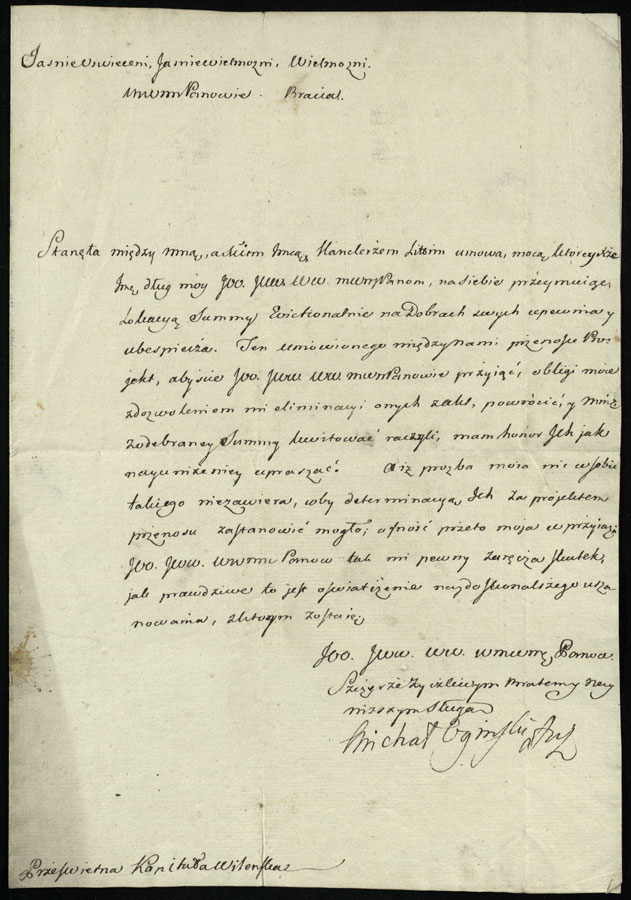 Jaśnieoświeceni, Jaśniewielmożni, Wielmożni.
Panowie Bracia.
Stanęła między mną, a Kanclerzem Littim umowa, mocą którey tże
długi móy JOO. JWW. WW. Panom, na siebie przéymuiąc,
Lokacyą Summy Ewictionalnie na Dobrach swych upewnia y
ubespiecza. Ten umówionego między nami przenosu Pro-
jekt, abyście JOO. JWW. WW. Panowie przyjąć, obligi moie
zdozwoleniem mi eliminacyi onych z akt, powrócić, y mnie
zodebraney Summy kwitować raczyli, mam honor Ich jak
nayuniżeniey upraszać. A iż prozba moia nic w sobie
takiego niezawiera, coby determinacyą Ich za projektem
przenosu zastanowić mogło; ufność przeto moja w przyiazń
JOO. JWW. WW Panow tak mi pewny zaręcza skutek,
jak prawdziwe to jest oświadczenie naydoskonalszego usza-
nowania, zktorym zostaię,
JOO. JWW. WW. Panow.
Szczérze Życzliwym Bratem y Nay
niższym Sługą
Michał Ogiński
Prześwietna Kapituła Wileńska